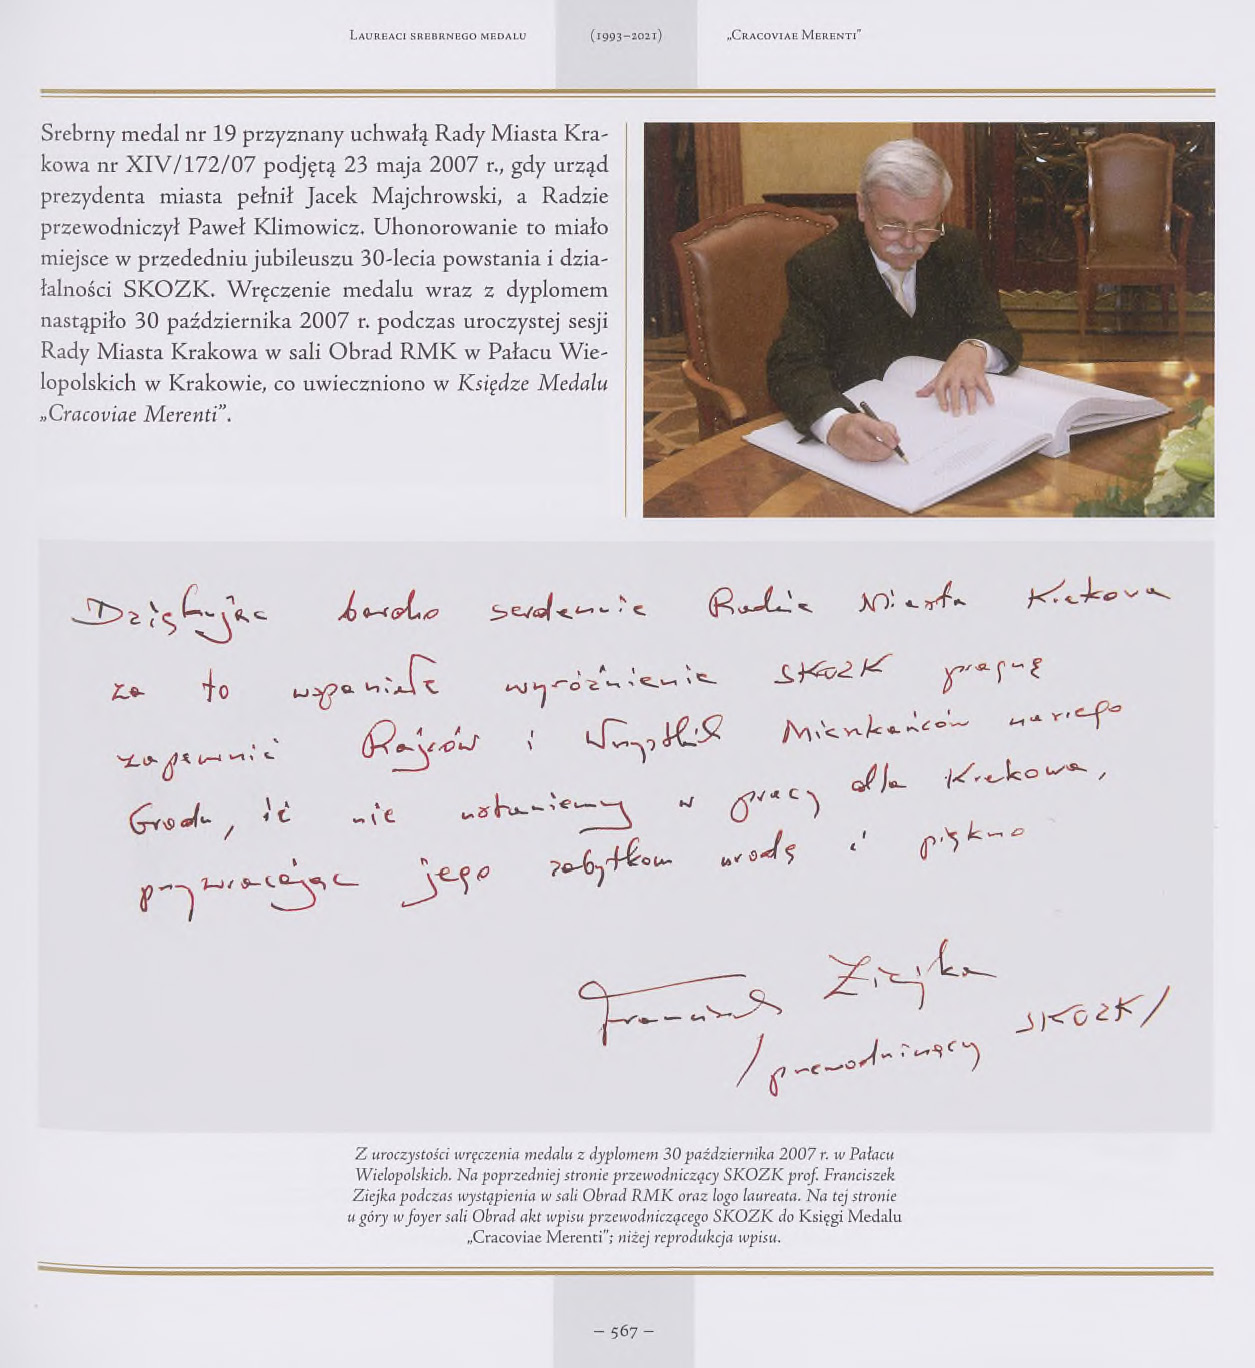 LAUREACI SREBRNEGO MEDALU (1993–2021) „CRACOVIAE MERENTI”
Srebrny medal nr 19 przyznany uchwałą Rady Miasta Kra-
kowa nr XIV/172/07 podjętą 23 maja 2007 r., gdy urząd
prezydenta miasta pełnił Jacek Majchrowski, a Radzie
przewodniczył Paweł Klimowicz. Uhonorowanie to miało
miejsce w przededniu jubileuszu 30-lecia powstania i dzia-
łalności SKOZK. Wręczenie medalu wraz z dyplomem
nastąpiło 30 października 2007 r. podczas uroczystej sesji
Rady Miasta Krakowa w sali Obrad RMK w Pałacu Wie-
lopolskich w Krakowie, co uwieczniono w Księdze Medalu
„Cracoviae Merenti”.
Dziękując bardzo serdecznie Radzie Miasta Krakowa
za to wspaniałe wyróżnienie SKOZK pragnę
zapewnić Rajców i Wszystkich Mieszkańców naszego
Grodu, iż nie ustaniemy w pracy dla Krakowa,
przywracając jego zabytkom urodę i piękno
Franciszek Ziejka
/przewodniczący SKOZK/
Z uroczystości wręczenia medalu z dyplomem 30 października 2007 r. w Pałacu
Wielopolskich. Na poprzedniej stronie przewodniczący SKOZK prof. Franciszek
Ziejka podczas wystąpienia w sali Obrad RMK oraz logo laureata. Na tej stronie
u góry w foyer sali Obrad akt wpisu przewodniczącego SKOZK do Księgi Medalu
„Cracoviae Merenti”; niżej reprodukcja wpisu.
– 567 –